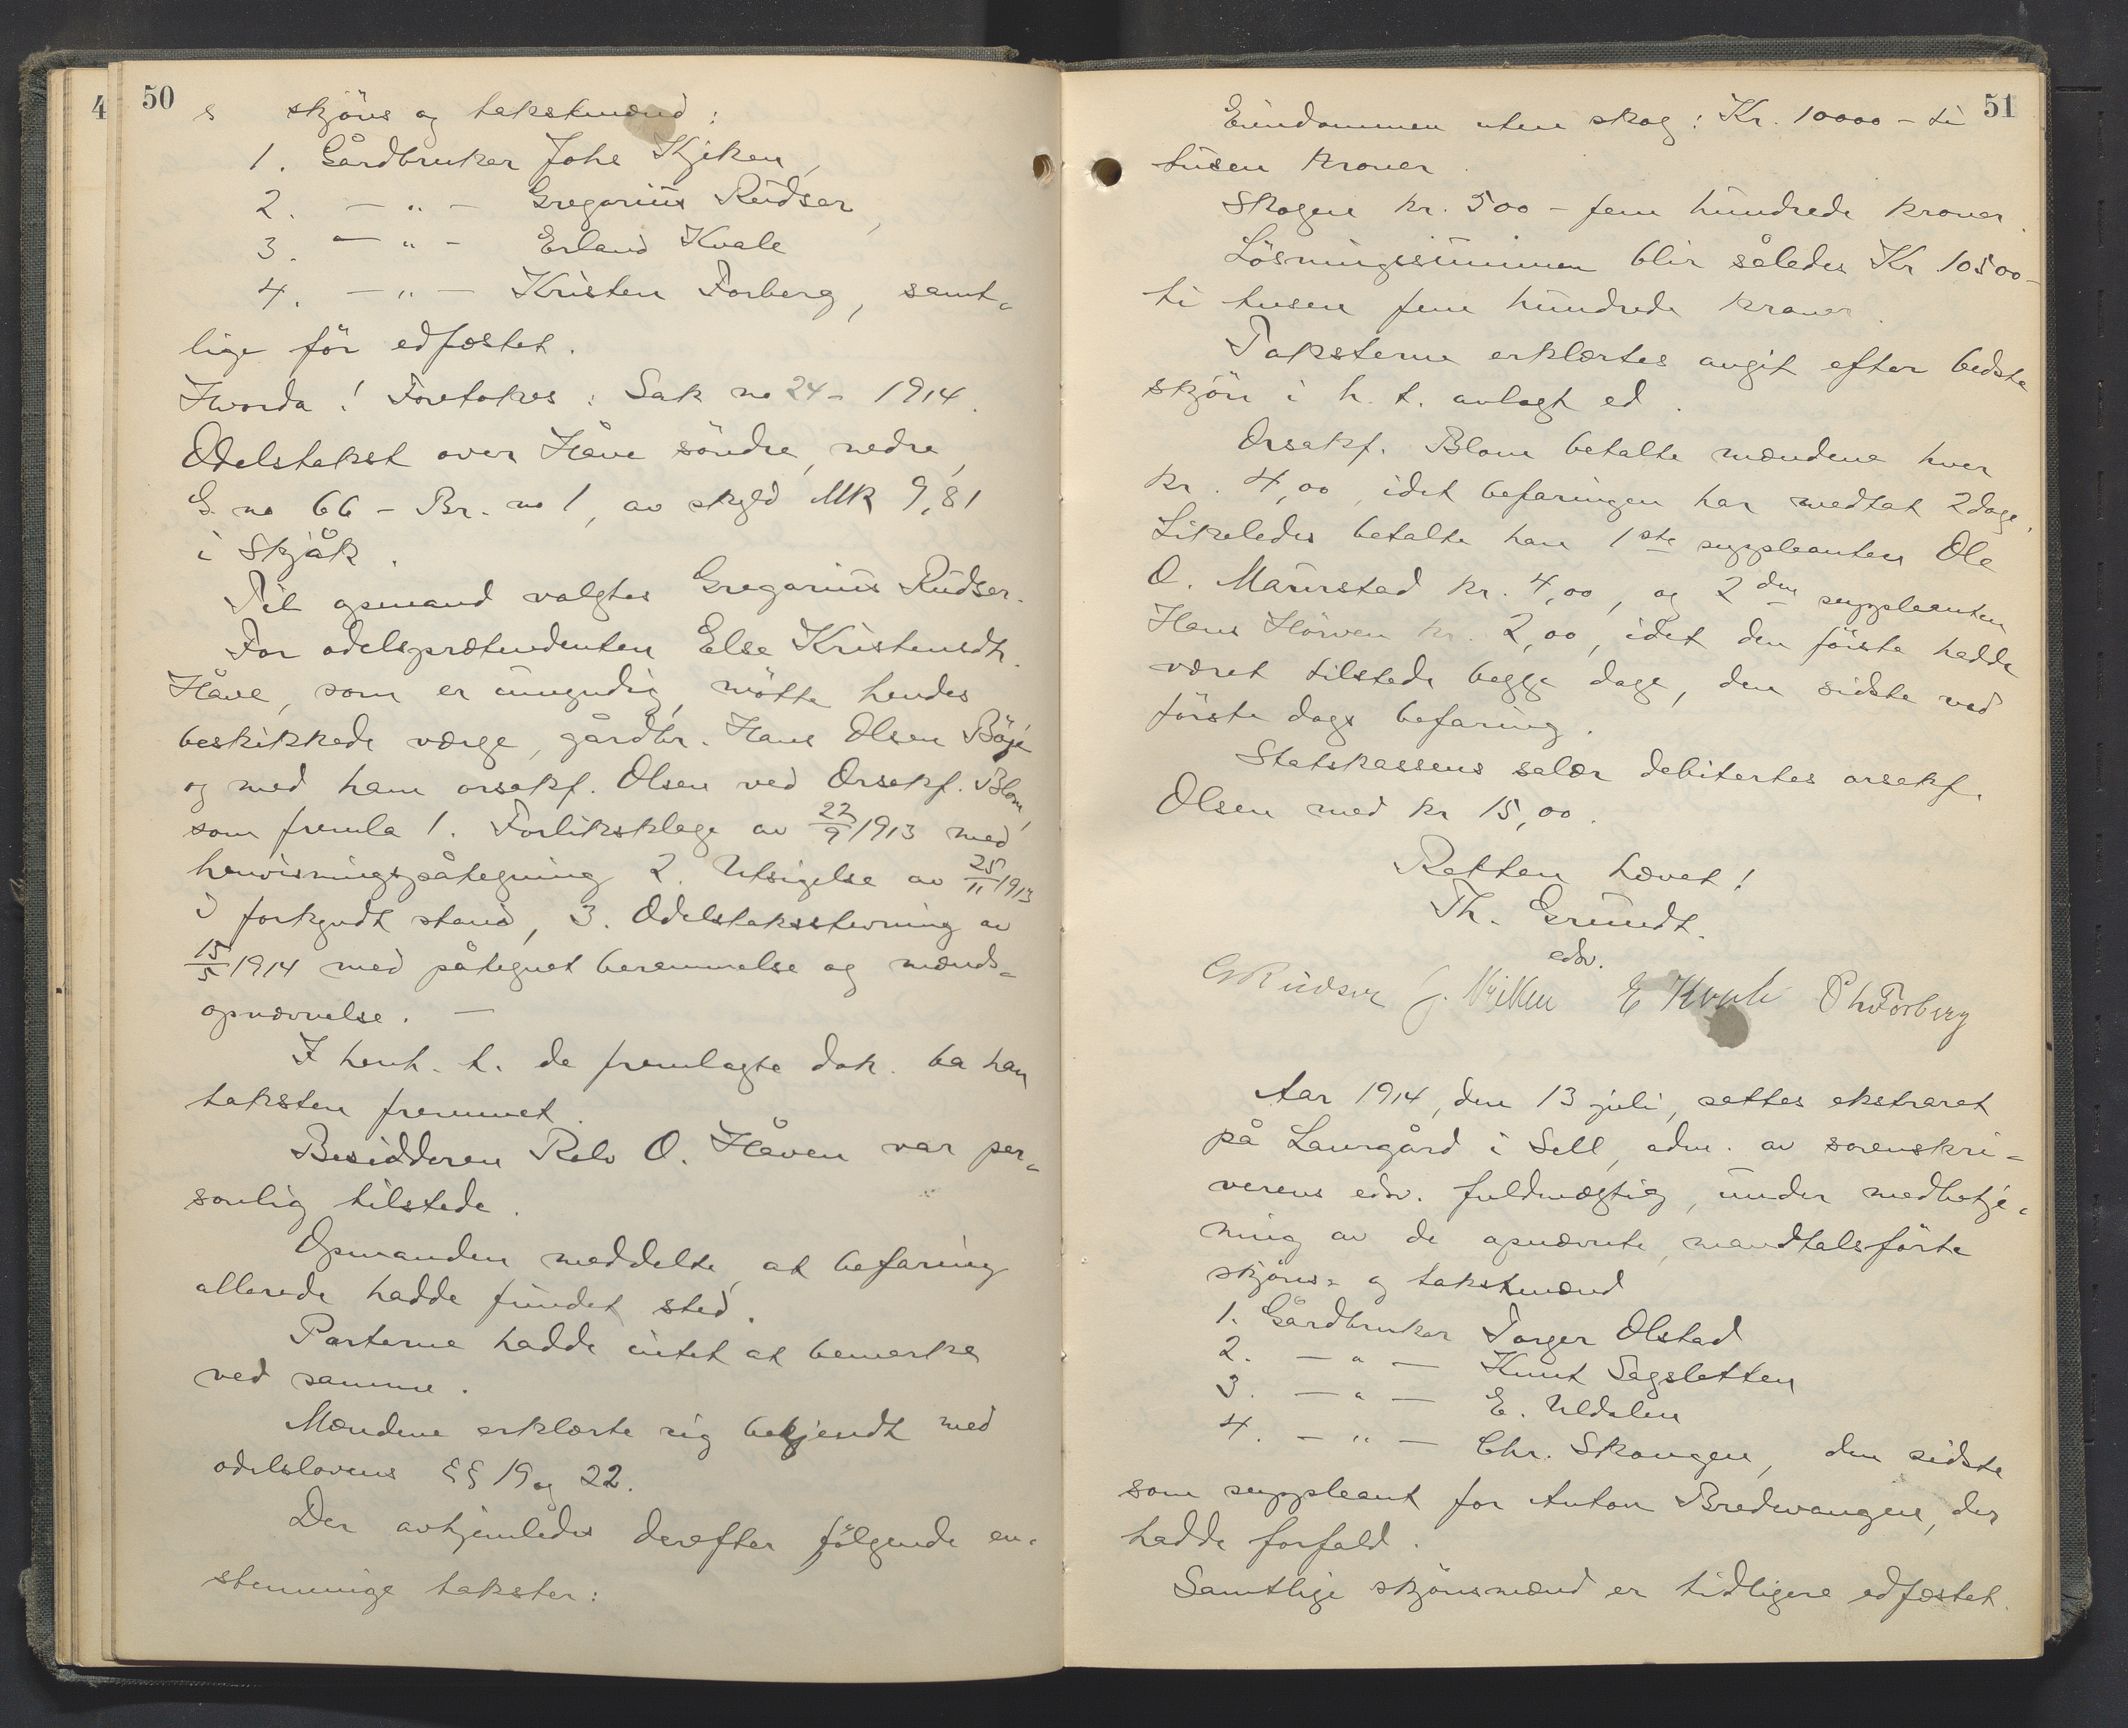 50
skjöns og takstmænd:
1. Gårdbruker Johs Kjeken,
2. — " — Gregorius Rudser,
3. — " — Erland Kvale
4. — " — Kristen Forberg, samt-
lige för edfæstet.
Hvorda! Foretokes: Sak no 24 - 1914.
Odelstakst over Håve söndre, nedre,
G. no 66 - Br. no 1, av skyld Mk 9,81
i Skjåk.
Til opmand valgtes Gregorius Rudser.
For odelsprætendenten Else Kristensdtr.
Håve, som er umyndig, mötte hendes
beskikkede værge, gårdbr. Hans Olsen Böje
og med ham orsakf. Olsen ved Orsakf. Blom,
som fremla 1. Forliksklage av 22/9 1913 med
henvisningspåtegning 2. Utsigelse av 25/11 1913
i forkyndt stand, 3. Odelstakststevning av
15/5 1914 med påtegnet berammelse og mænds-
opnævnelse. —
I henh. t. de fremlagte dok. ba han
taksten fremmet.
Besidderen Rolv O. Håven var per-
sonlig tilstede.
Opmanden meddelte, at befaring
allerede hadde fundet sted.
Parterne hadde intet at bemerke
ved samme.
Mændene erklærte sig bekjendt med
odelslovens §§ 19 og 22.
Der avhjemledes derefter følgende en-
stemmige takster:
51
Eiendommen uten skog: Kr. 10000 - ti
tusen kroner.
Skogen kr. 500 - fem hundrede kroner.
Lösningssummen blir således Kr 10500 -
ti tusen fem hundrede kroner.
Taksterne erklærtes avgit efter bedste
skjön i h. t. avlagt ed.
Orsakf. Blom betalte mændene hver
kr. 4,00, idet befaringen har medtat 2 dage.
Likeledes betalte han 1ste suppleanten Ole
O. Maurstad kr. 4,00, og 2den suppleanten
Hans Hörven kr. 2,00, idet den förste hadde
været tilstede begge dage, den sidste ved
förste dags befaring.
Statskassens salær debitertes orsakf.
Olsen med kr 15,00.
Retten hævet!
Th. Grundt.
edsv.
G Rudser J. Kjeken E Kvale Forberg
Aar 1914, den 13 juli, sattes ekstraret
på Laurgård i Sell, adm. av sorenskri-
verens edsv. fuldmægtig, under medbetje-
ning av de opnævnte, mandtalsförte
skjöns- og takstmænd
1. Gårdbruker Torger Olstad
2. — " — Knut Sagsletten
3. — " — E. Uldalen
4. — " — Chr. Skougen, den sidste
som suppleant for Anton Bredevangen, der
hadde forfald.
Samtlige skjönsmænd er tidligere edfæstet.